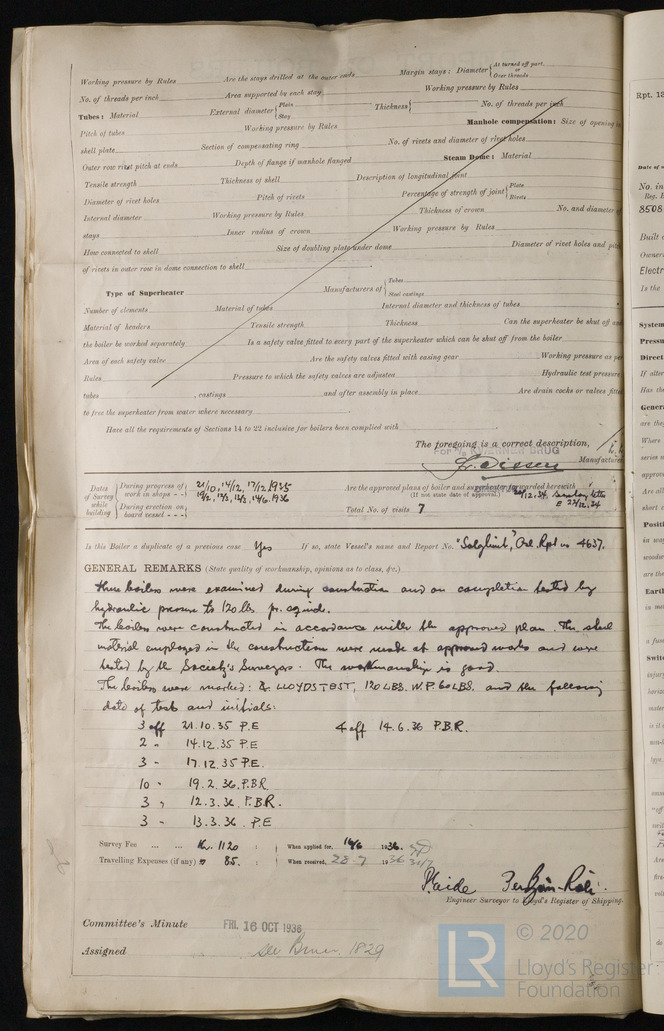 Working pressure by Rules Are the stays drilled at the outer ends Margin stays: Diameter { At turned off part or Over threads
No. of threads per inch Area supported by each stay Working pressure by Rules
Tubes: Material External diameter { Plain Stay Thickness { No. of threads per inch
Pitch of tubes Working pressure by Rules Manhole compensation: Size of opening in
shell plate Section of compensating ring No. of rivets and diameter of rivet holes
Outer row rivet pitch at ends Depth of flange if manhole flanged Steam Dome: Material
Tensile strength Thickness of shell Description of longitudinal joint
Diameter of rivet holes Pitch of rivets Percentage of strength of joint { Plate Rivets
Internal diameter Working pressure by Rules Thickness of crown No. and diameter of
stays Inner radius of crown Working pressure by Rules
How connected to shell Size of doubling plate under dome Diameter of rivet holes and pitch
of rivets in outer row in dome connection to shell
Type of Superheater Manufacturers of { Tubes Steel castings
Number of elements Material of tubes Internal diameter and thickness of tubes
Material of headers Tensile strength Thickness Can the superheater be shut off and
the boiler be worked separately Is a safety valve fitted to every part of the superheater which can be shut off from the boiler
Area of each safety valve Are the safety valves fitted with easing gear Working pressure as per
Rules Pressure to which the safety valves are adjusted Hydraulic test pressure
tubes , castings and after assembly in place Are drain cocks or valves fitted
to free the superheater from water where necessary
Have all the requirements of Sections 14 to 22 inclusive for boilers been complied with
The foregoing is a correct description,
BRUG
Manufacturer
Dates of Survey while building { During progress of work in shops - - 21/10, 14/12, 17/12 1935 Are the approved plans of boiler and superheater forwarded herewith
19/2, 12/3, 13/3, 14/6. 1936 (If not state date of approval.)
During erection on board vessel - - - Total No. of visits 7
Is this Boiler a duplicate of a previous case Yes If so, state Vessel's name and Report No. "Solglimt", Osl. Rpt no 4637.
GENERAL REMARKS (State quality of workmanship, opinions as to class, &c.)
These boilers were examined during construction and on completion tested by
hydraulic pressure to 120 lbs pr. sq. inch.
The boilers were constructed in accordance with the approved plan. The steel
material employed in the construction were made at approved works and were
tested by the Society's Surveyors. The workmanship is good.
The boilers were marked: & LLOYDS TEST, 120 LBS. W.P. 60 LBS. and the following
date of test and initials:
3 off 21.10.35 P.E 4 off 14.6.36 P.B.R.
2 " 14.12.35 P.E
3 " 17.12.35 P.E.
10 " 19.2.36. P.B.R
3 " 12.3.36. P.B.R.
3 " 13.3.36. P.E
Survey Fee ... ... Kr. 1120 : When applied for, 16/6 1936.
Travelling Expenses (if any) " 85. : When received, 28.7 1936
Engineer Surveyor to Lloyd's Register of Shipping.
Committee's Minute FRI. 16 OCT 1936
Assigned see 1829
© 2020
LR Lloyd's Register
Foundation
Rpt. 13
Date of
No. in
Reg. B
8508
Built
Owner
Electr
Is the
System
Pressu
Direct
If alter
Has the
Genera
are they
Where
series
approv
Are all
short
Positi
in
wood
are the
Earth
Switc